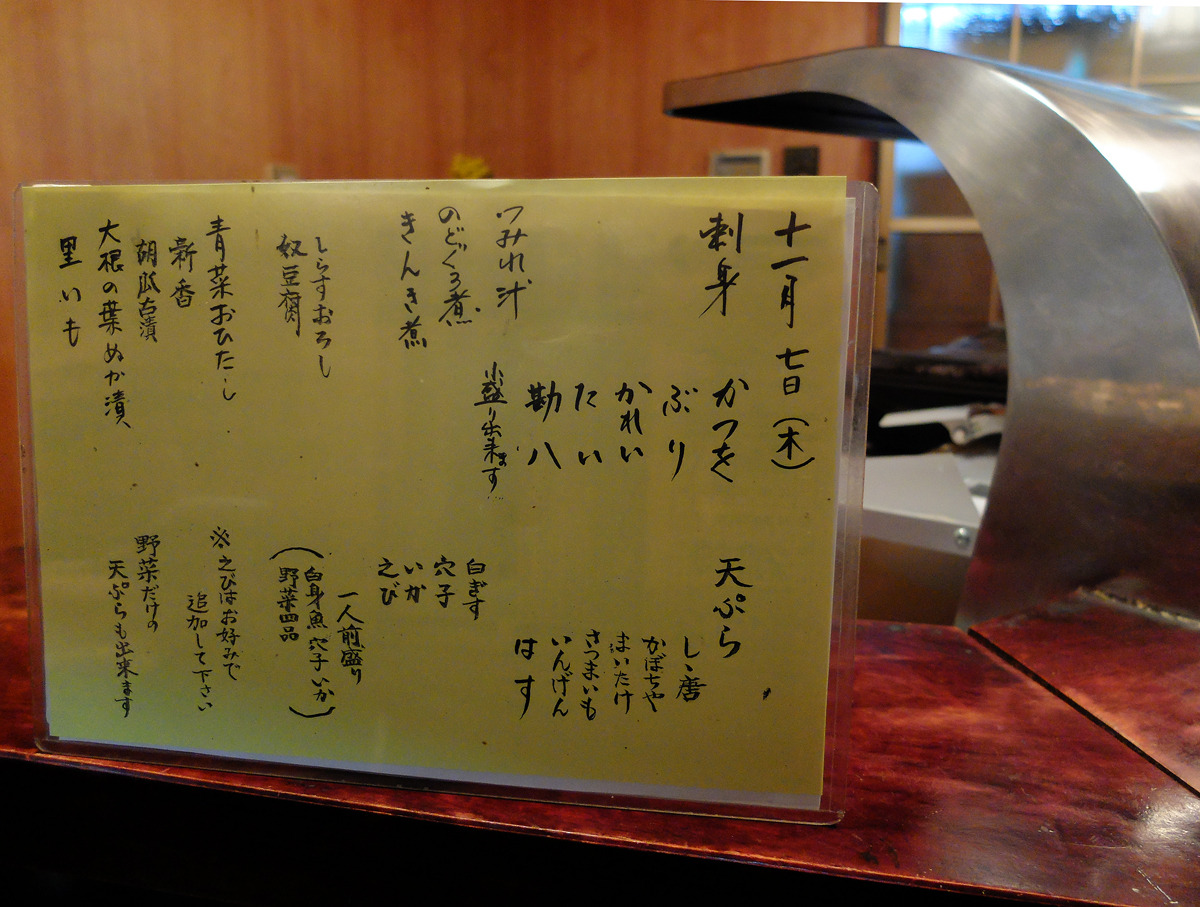 十一月七日(木)
刺身
かつを
ぶり
かれい
たい
勘八
小盛り出来ます
つみれ汁
のどぐろ煮
きんき煮
しらすおろし
奴豆腐
青菜おひたし
新香
胡瓜古漬
大根の葉ぬか漬
里いも
天ぷら
しゝ唐
かぼちや
まいたけ
さつまいも
いんげん
はす
白ぎす
穴子
いか
えび
一人前盛り
(白身魚 穴子 いか
野菜四品)
※えびはお好みで
追加して下さい
野菜だけの
天ぷらも出来ます